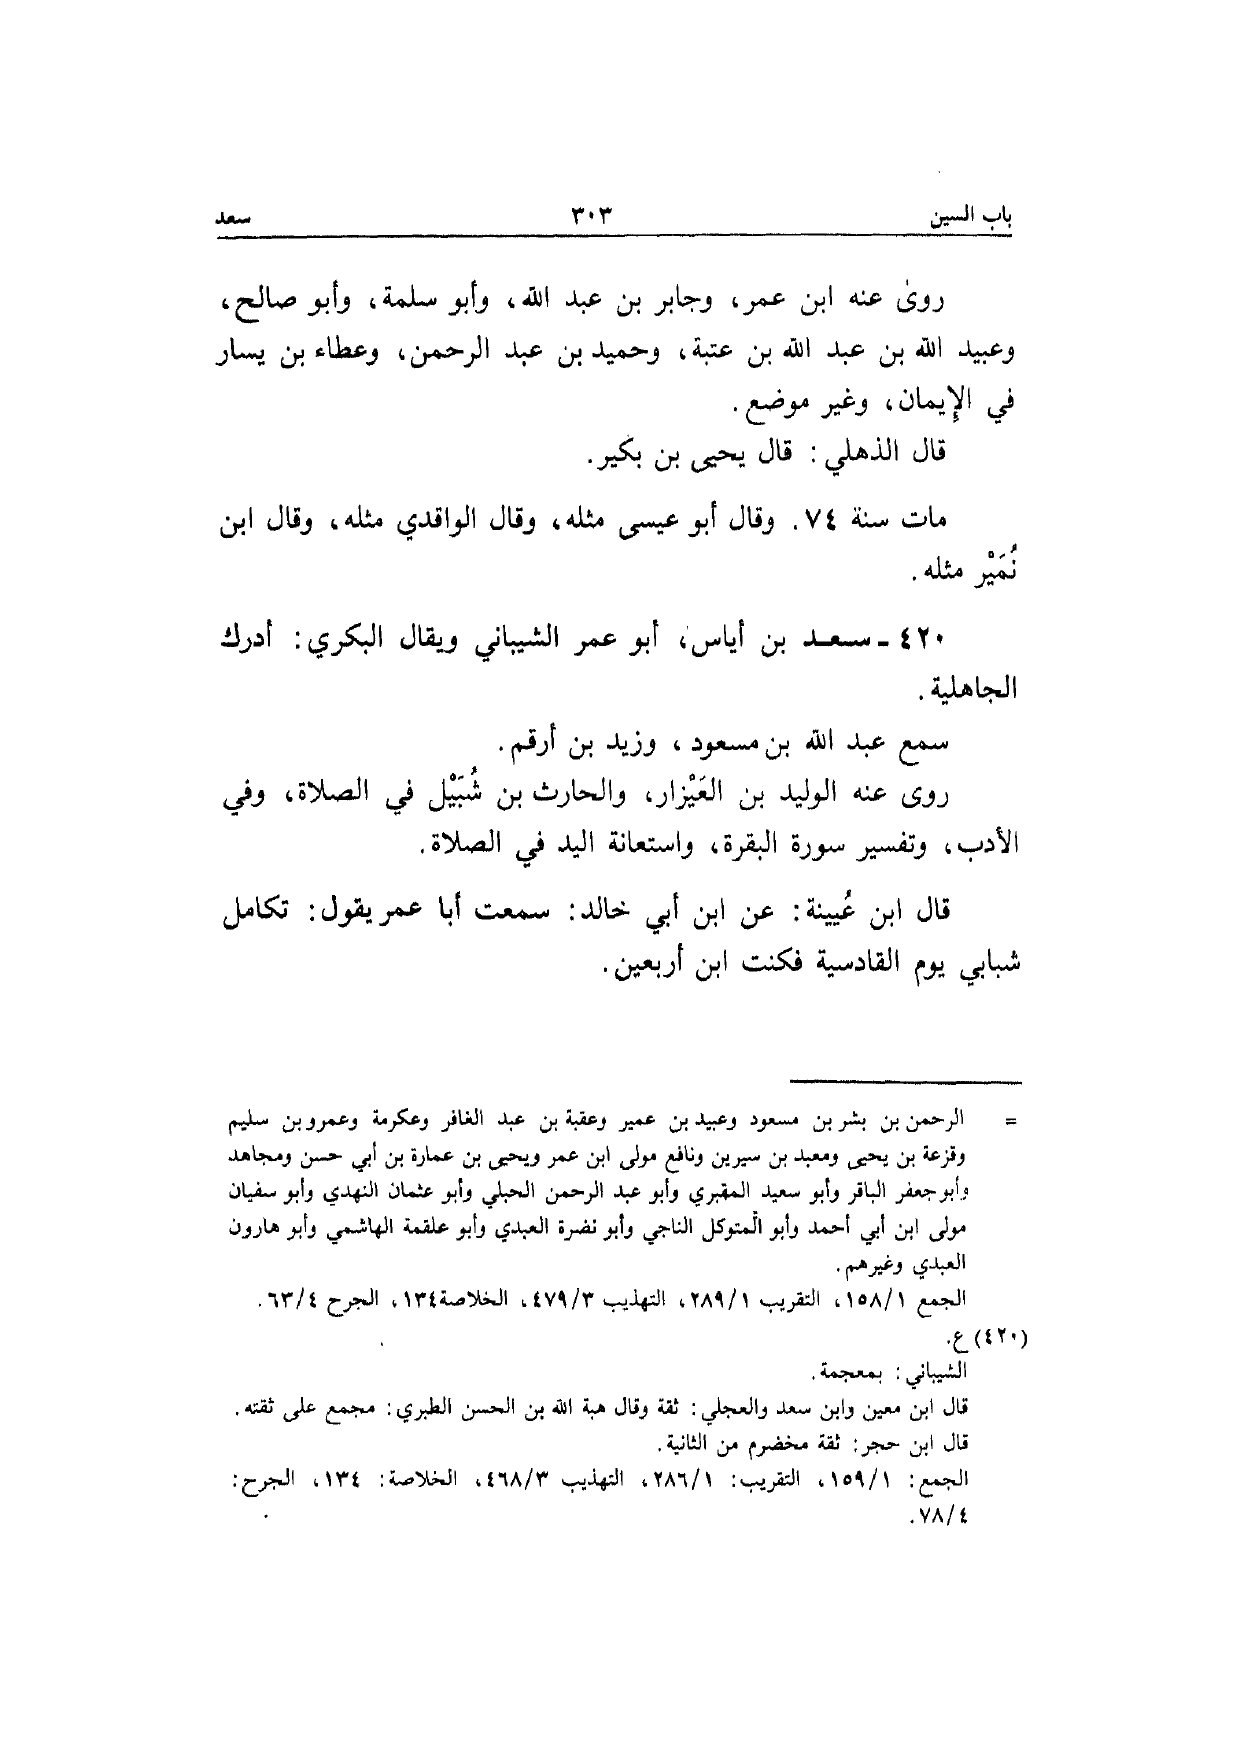 باب السين ٣٠٣ سعد
روىٰ عنه ابن عمر، وجابر بن عبد الله، وأبو سلمة، وأبو صالح،
وعبيد الله بن عبد الله بن عتبة، وحميد بن عبد الرحمن، وعطاء بن يسار
في الإيمان، وغير موضع.
قال الذهلي: قال يحيى بن بكير.
مات سنة ٧٤. وقال أبو عيسى مثله، وقال الواقدي مثله، وقال ابن
نُمَيْر مثله.
٤٢٠ - سعد بن أياس، أبو عمر الشيباني ويقال البكري: أدرك
الجاهلية.
سمع عبد الله بن مسعود، وزيد بن أرقم.
روى عنه الوليد بن العَيْزار، والحارث بن شُبَيْل في الصلاة، وفي
الأدب، وتفسير سورة البقرة، واستعانة اليد في الصلاة.
قال ابن عُيينة: عن ابن أبي خالد: سمعت أبا عمر يقول: تكامل
شبابي يوم القادسية فكنت ابن أربعين.
= الرحمن بن بشر بن مسعود وعبيد بن عمير وعقبة بن عبد الغافر وعكرمة وعمرو بن سليم
وقزعة بن يحيى ومعبد بن سيرين ونافع مولى ابن عمر ويحيى بن عمارة بن أبي حسن ومجاهد
وأبو جعفر الباقر وأبو سعيد المقبري وأبو عبد الرحمن الحبلي وأبو عثمان النهدي وأبو سفيان
مولى ابن أبي أحمد وأبو المتوكل الناجي وأبو نضرة العبدي وأبو علقمة الهاشمي وأبو هارون
العبدي وغيرهم.
الجمع ١٥٨/١، التقريب ٢٨٩/١، التهذيب ٤٧٩/٣، الخلاصة ١٣٤، الجرح ٦٣/٤.
(٤٢٠) ع.
الشيباني: بمعجمة.
قال ابن معين وابن سعد والعجلي: ثقة وقال هبة الله بن الحسن الطبري: مجمع على ثقته.
قال ابن حجر: ثقة مخضرم من الثانية.
الجمع: ١٥٩/١، التقريب: ٢٨٦/١، التهذيب ٤٦٨/٣، الخلاصة: ١٣٤، الجرح:
٧٨/٤.